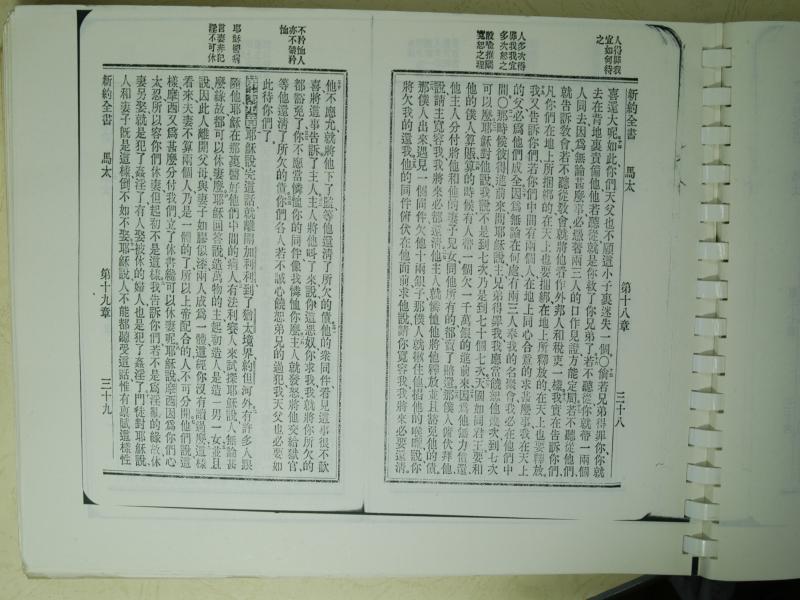 人得罪我
宜如何待
之
人多次得
罪我我宜
多次恕之
設譬推闡
寬恕之理
新約全書　馬太　第十八章　三十八
喜還大呢如此你們天父也不願這小子裏迷失一個○倘若兄弟得罪你你就
去在背地裏責備他他若聽從就是你救了你兄弟了若不聽從你就帶一兩個
人同去因爲無論甚麽事必憑著兩三人的口作見證方能定罷若不聽從他們
就告訴教會若不聽從教會就將他看作外邦人和稅吏一樣我實在告訴你們
凡你們在地上所捆綁的在天上也要捆綁在地上所釋放的在天上也要釋放
我又告訴你們若你們中間有兩個人在地上同心合意的求甚麽事我在天上
的父必爲他們成全因爲無論在何處有兩三人奉我的名聚會我必在他們中
間○那時候彼得進前來問耶穌說主兄弟得罪我我應當饒恕他幾次到七次
可以麽耶穌對他說我說不是到七次乃是到七十個七次天國如同君王要和
他的僕人算賬算的時候有人帶一個欠一千萬銀的進前來因爲他無力償還
他主人分付將他和他的妻子兒女同他所有的都賣了賠還那僕人俯伏拜他
說請主寬容我我將來必都還清他主人就憐恤他將他釋放並且豁免他的債
那僕人出來遇見一個同伴欠他十兩銀子那僕人就揪住他掐他的喉嚨說你
將欠我的還我他的同伴俯伏在他面前求他說請你寬容我我將來必要還清
不矜恤人
亦不蒙矜
恤
耶穌醫病
言妻非犯
淫不可休
他不應允就將他下了監等他還清了所欠的債他的衆同伴看見這事很不歡
喜將這事告訴了主人主人將他叫了來說你這惡奴你求我我就將你所欠的
都豁免了你不應當憐恤你的同伴像我憐恤你麽主人就發怒將他交給獄官
等他還清了所欠的債你們各人若不誠心饒恕弟兄的過犯我天父也必要如
此待你們了
耶穌說完這話就離開加利利到了猶太境界約但河外有許多人跟
隨他耶穌在那裏醫好他們中間的病人有法利賽人來試探耶穌說人無論甚
麽緣故都可以休妻麽耶穌回答說造萬物的主起初造人是造一男一女並且
說因此人離開父母與妻子如膠似漆兩人成爲一體這經你沒有讀過麽這樣
看來夫妻不算兩個人乃是一個的了所以上帝配合的人不可分開他們說這
樣摩西又爲甚麽分付我們立了休書纔可以休妻呢耶穌說摩西因爲你們心
太忍所以容你們休妻但起初不是這樣我告訴你們若不是爲淫亂的緣故休
妻另娶就是犯了姦淫了有人娶被休的婦人也是犯了姦淫了門徒對耶穌說
人和妻子旣是這樣倒不如不娶耶穌說人不能都聽受這話惟有稟賦這樣性
新約全書　馬太　第十九章　三十九